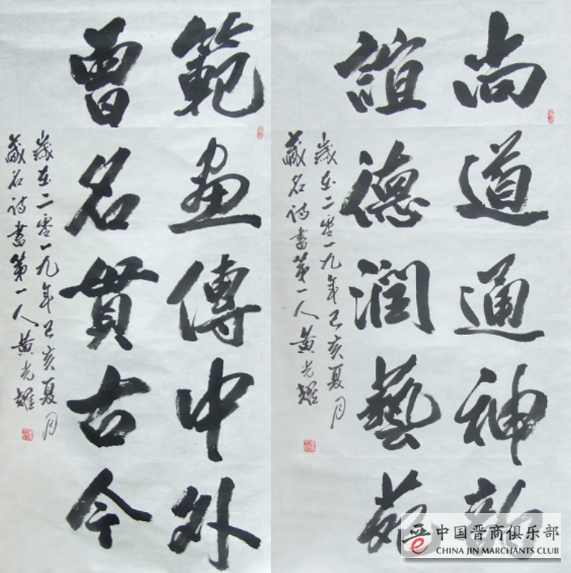 尚道通神韵
誼德潤藝苑
歲在二零一九年己亥夏月
藏名詩書第一人黄光耀
範畫傳中外
曾名貫古今
歲在二零一九年己亥夏月
藏名詩書第一人黄光耀
中国晋商俱乐部
CHINA JIN MARCHANTS CLUB